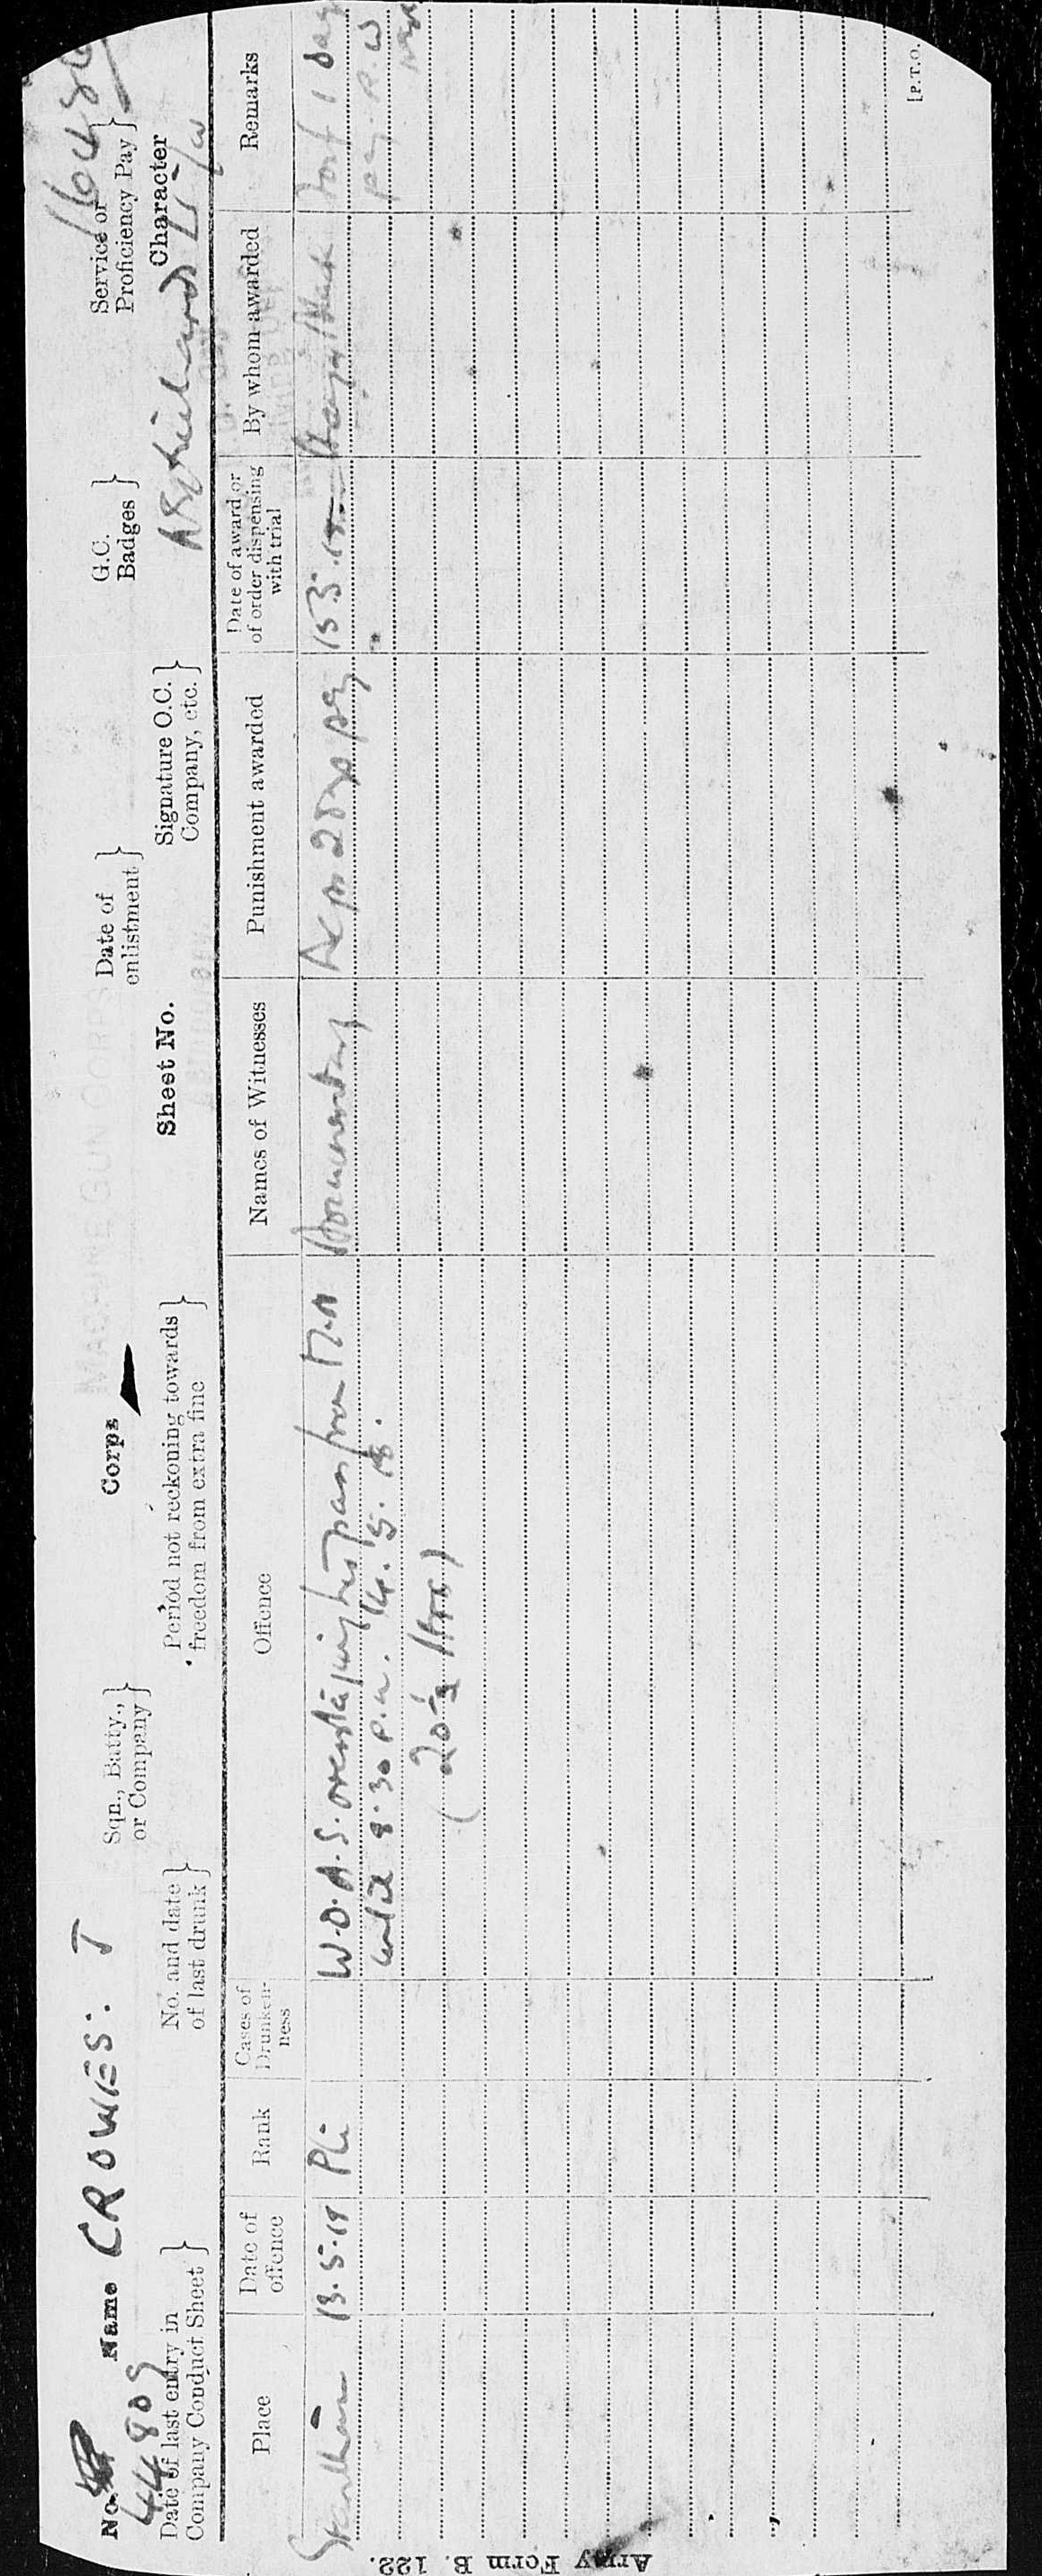 Army Form B. 122.
No. 44809 Name CROWES. T Sqn., Batty., or Company} Corps Date of enlistment} G.C. Badges} Service or Proficiency Pay}
MACHINE GUN CORPS
Date of last entry in Company Conduct Sheet} No. and date of last drunk} Period not reckoning towards freedom from extra fine} Sheet No. Signature O.C. Company, etc.} Character
Place Date of offence Rank Cases of Drunken-ness Offence Names of Witnesses Punishment awarded Date of award or of order dispensing with trial By whom awarded Remarks
Grantham 13.5.18 Pte W.O.A.S. overstaying his pass from M.N Documentary 2 days pay 15.5.18 1 day
until 8.30 P.M. 14.5.18. pay. R.W
(20½ Hrs)
[P.T.O.